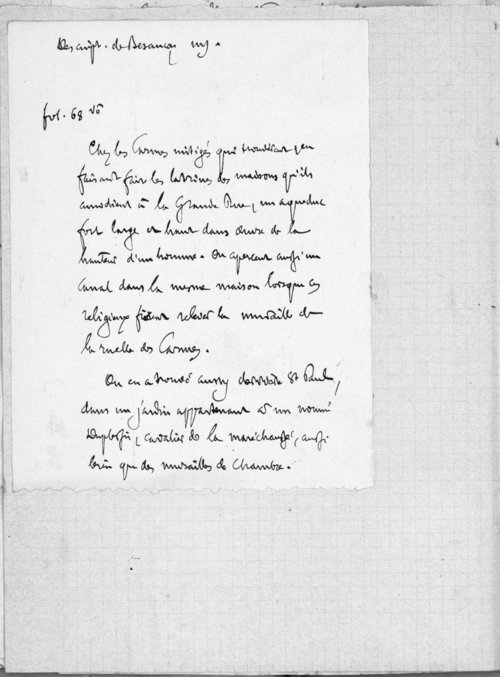 Descript. de Besançon ms.
fol. 68 vo
Chez les Carmes mitigés qui trouvèrent, en
faisant faire les latrines des maisons qu'ils
amodient à la Grande Rue, un aqueduc
fort large et haut dans œuvre de la
hauteur d'un homme. On aperceut aussi un
canal dans la mesme maison lorsque ces
religieux firent relever la muraille de
la ruelle des Carmes.
On en a trouvé aussy derrière St Paul,
dans un jardin appartenant à un nommé
cavalier de la maréchaussée, aussi
bien que des murailles de chambre.